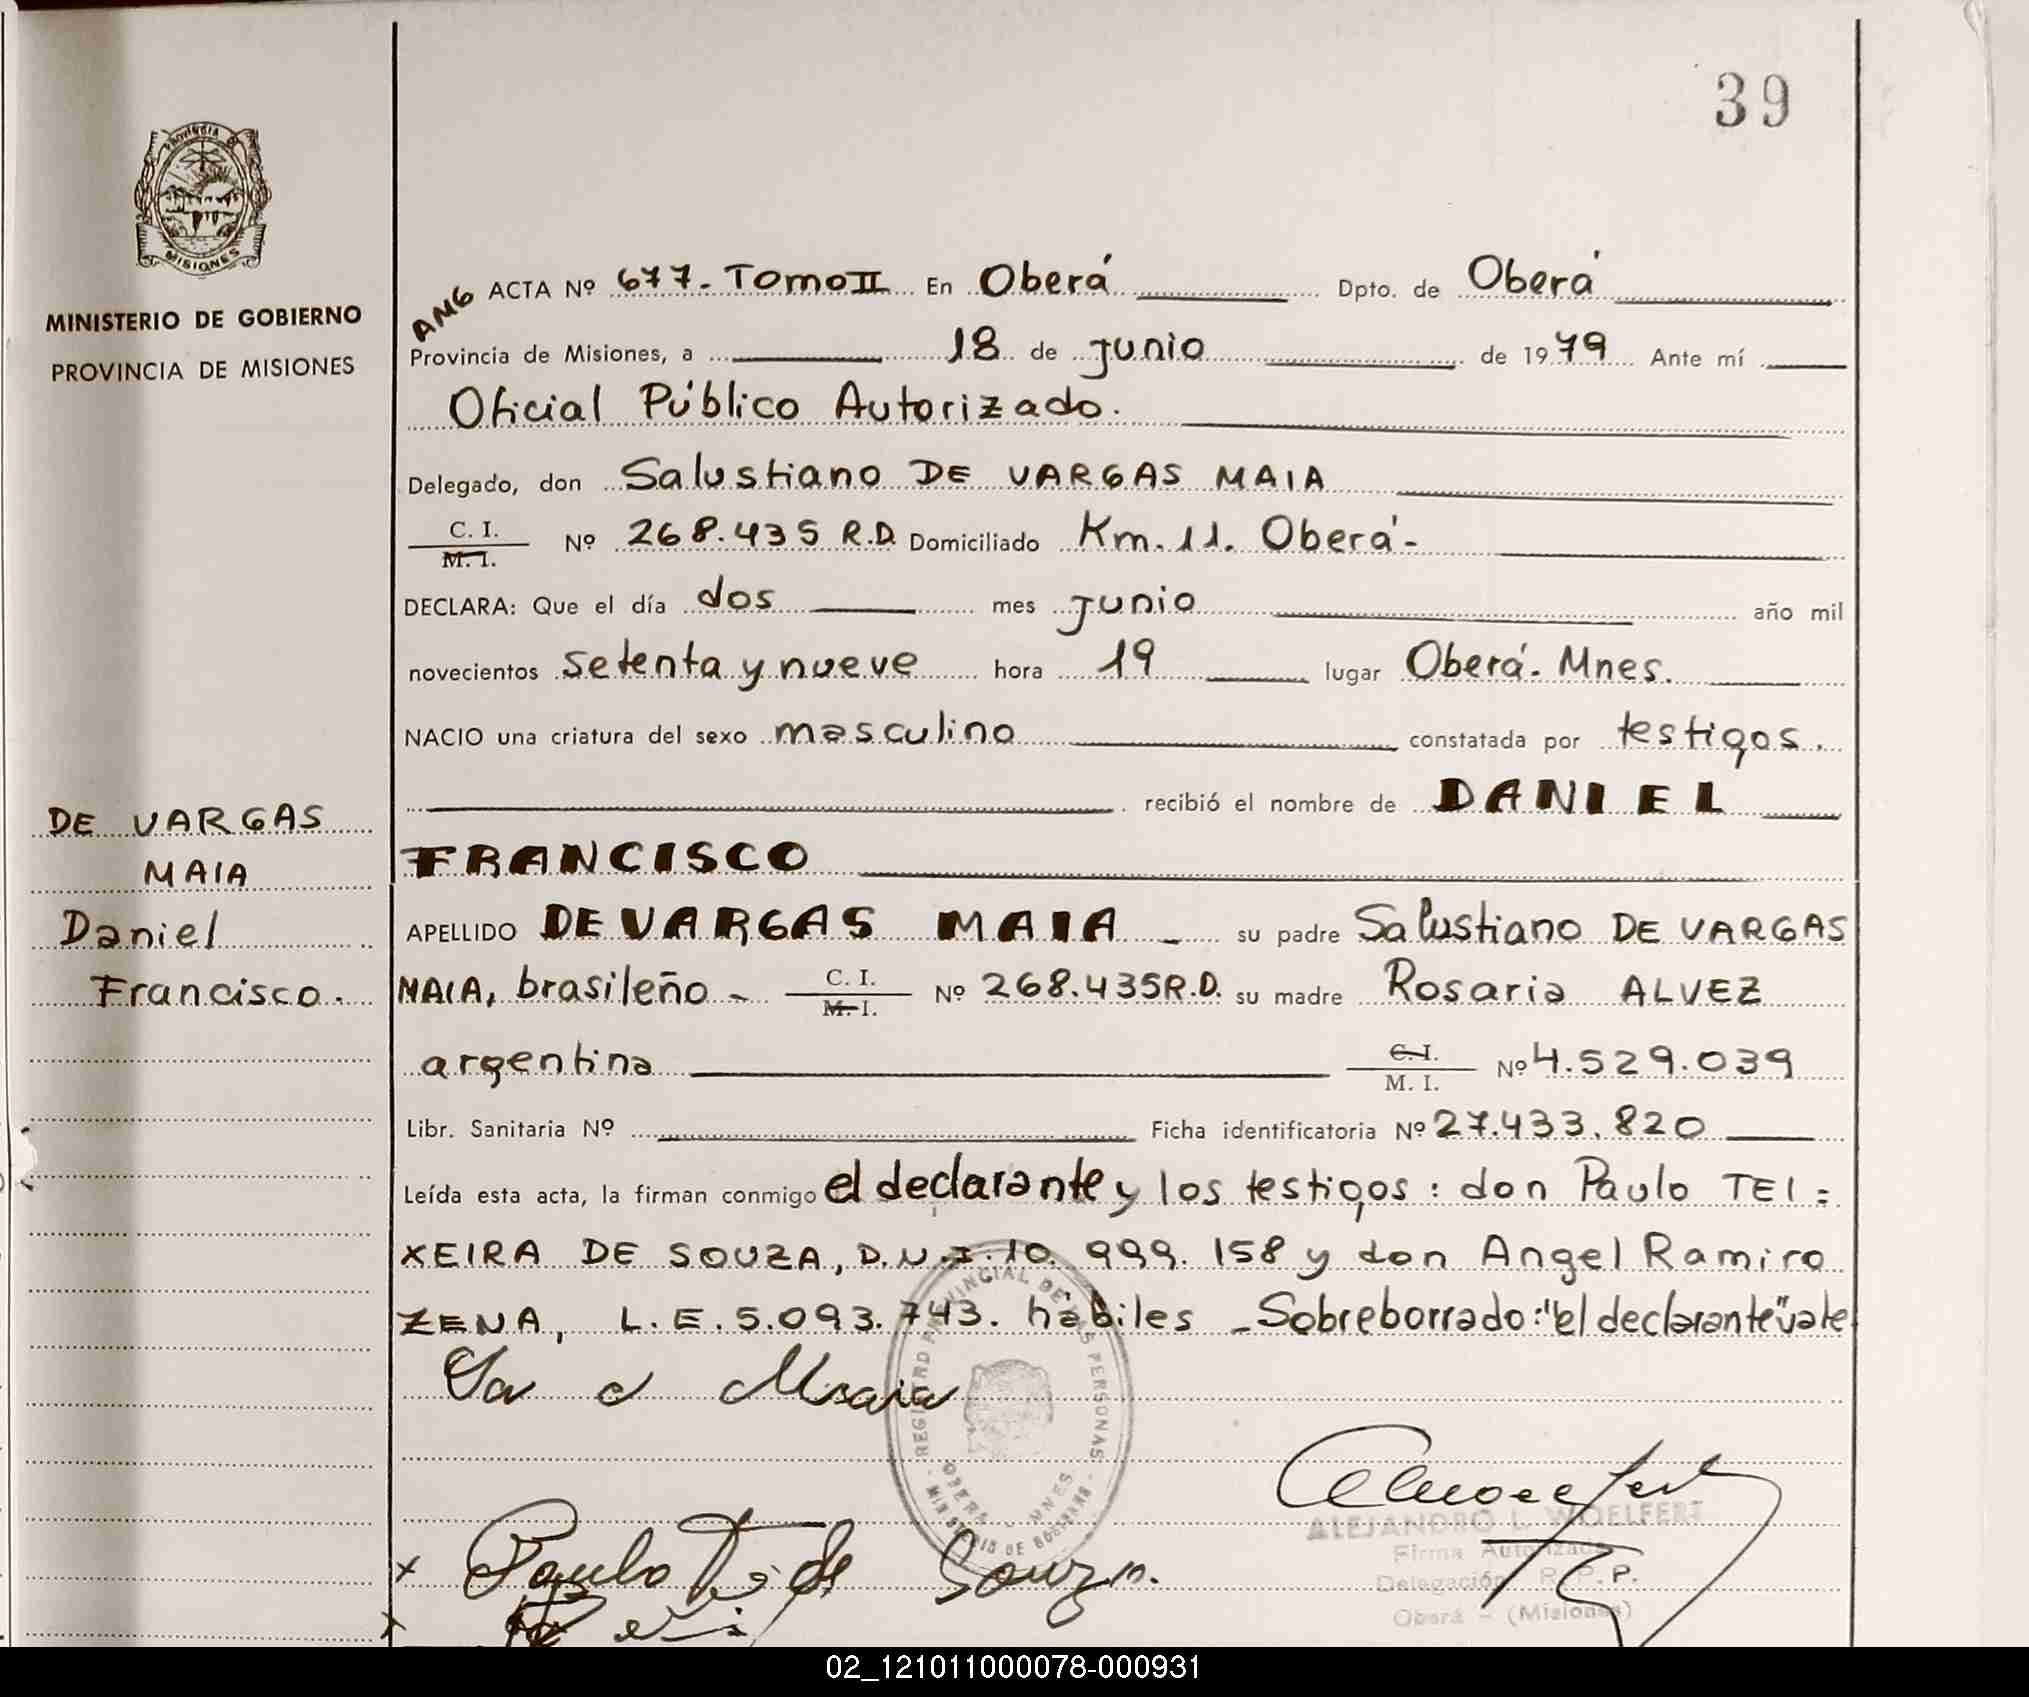 39
PROVINCIA DE
MISIONES
MINISTERIO DE GOBIERNO
PROVINCIA DE MISIONES
DE VARGAS
MAIA
Daniel
Francisco.
AMG
ACTA Nº 677- Tomo II En Oberá Dpto. de Oberá
Provincia de Misiones, a 18 de junio de 1979 Ante mí
Oficial Público Autorizado.
Delegado, don Salustiano DE VARGAS MAIA
C. I.
M. I. Nº 268.435 R.D. Domiciliado Km. 11. Oberá-
DECLARA: Que el día dos mes junio año mil
novecientos setenta y nueve hora 19 lugar Oberá. Mnes.
NACIO una criatura del sexo masculino constatada por testigos.
recibió el nombre de DANIEL
FRANCISCO
APELLIDO DE VARGAS MAIA - su padre Salustiano DE VARGAS
MAIA, brasileño - C. I. M. I. Nº 268.435R.D. su madre Rosaria ALVEZ
argentina C. I. M. I. Nº 4.529.039
Libr. Sanitaria Nº Ficha identificatoria Nº 27.433.820
Leída esta acta, la firman conmigo el declarante y los testigos: don Paulo TEI=
XEIRA DE SOUZA, D.N.I. 10. 999. 158 y don Angel Ramiro
ZENA, L.E. 5.093.743. hábiles - Sobreborrado: "el declarante" vale
Sa d Maia
REGISTRO PROVINCIAL DE LAS PERSONAS
OBERA - MNES
MINISTERIO DE GOBIERNO
ALEJANDRO L. WOELFERT
Firma Autorizada
Delegación R. P. P.
Oberá - (Misiones)
x Paulo T. de Souza.
x
02_121011000078-000931